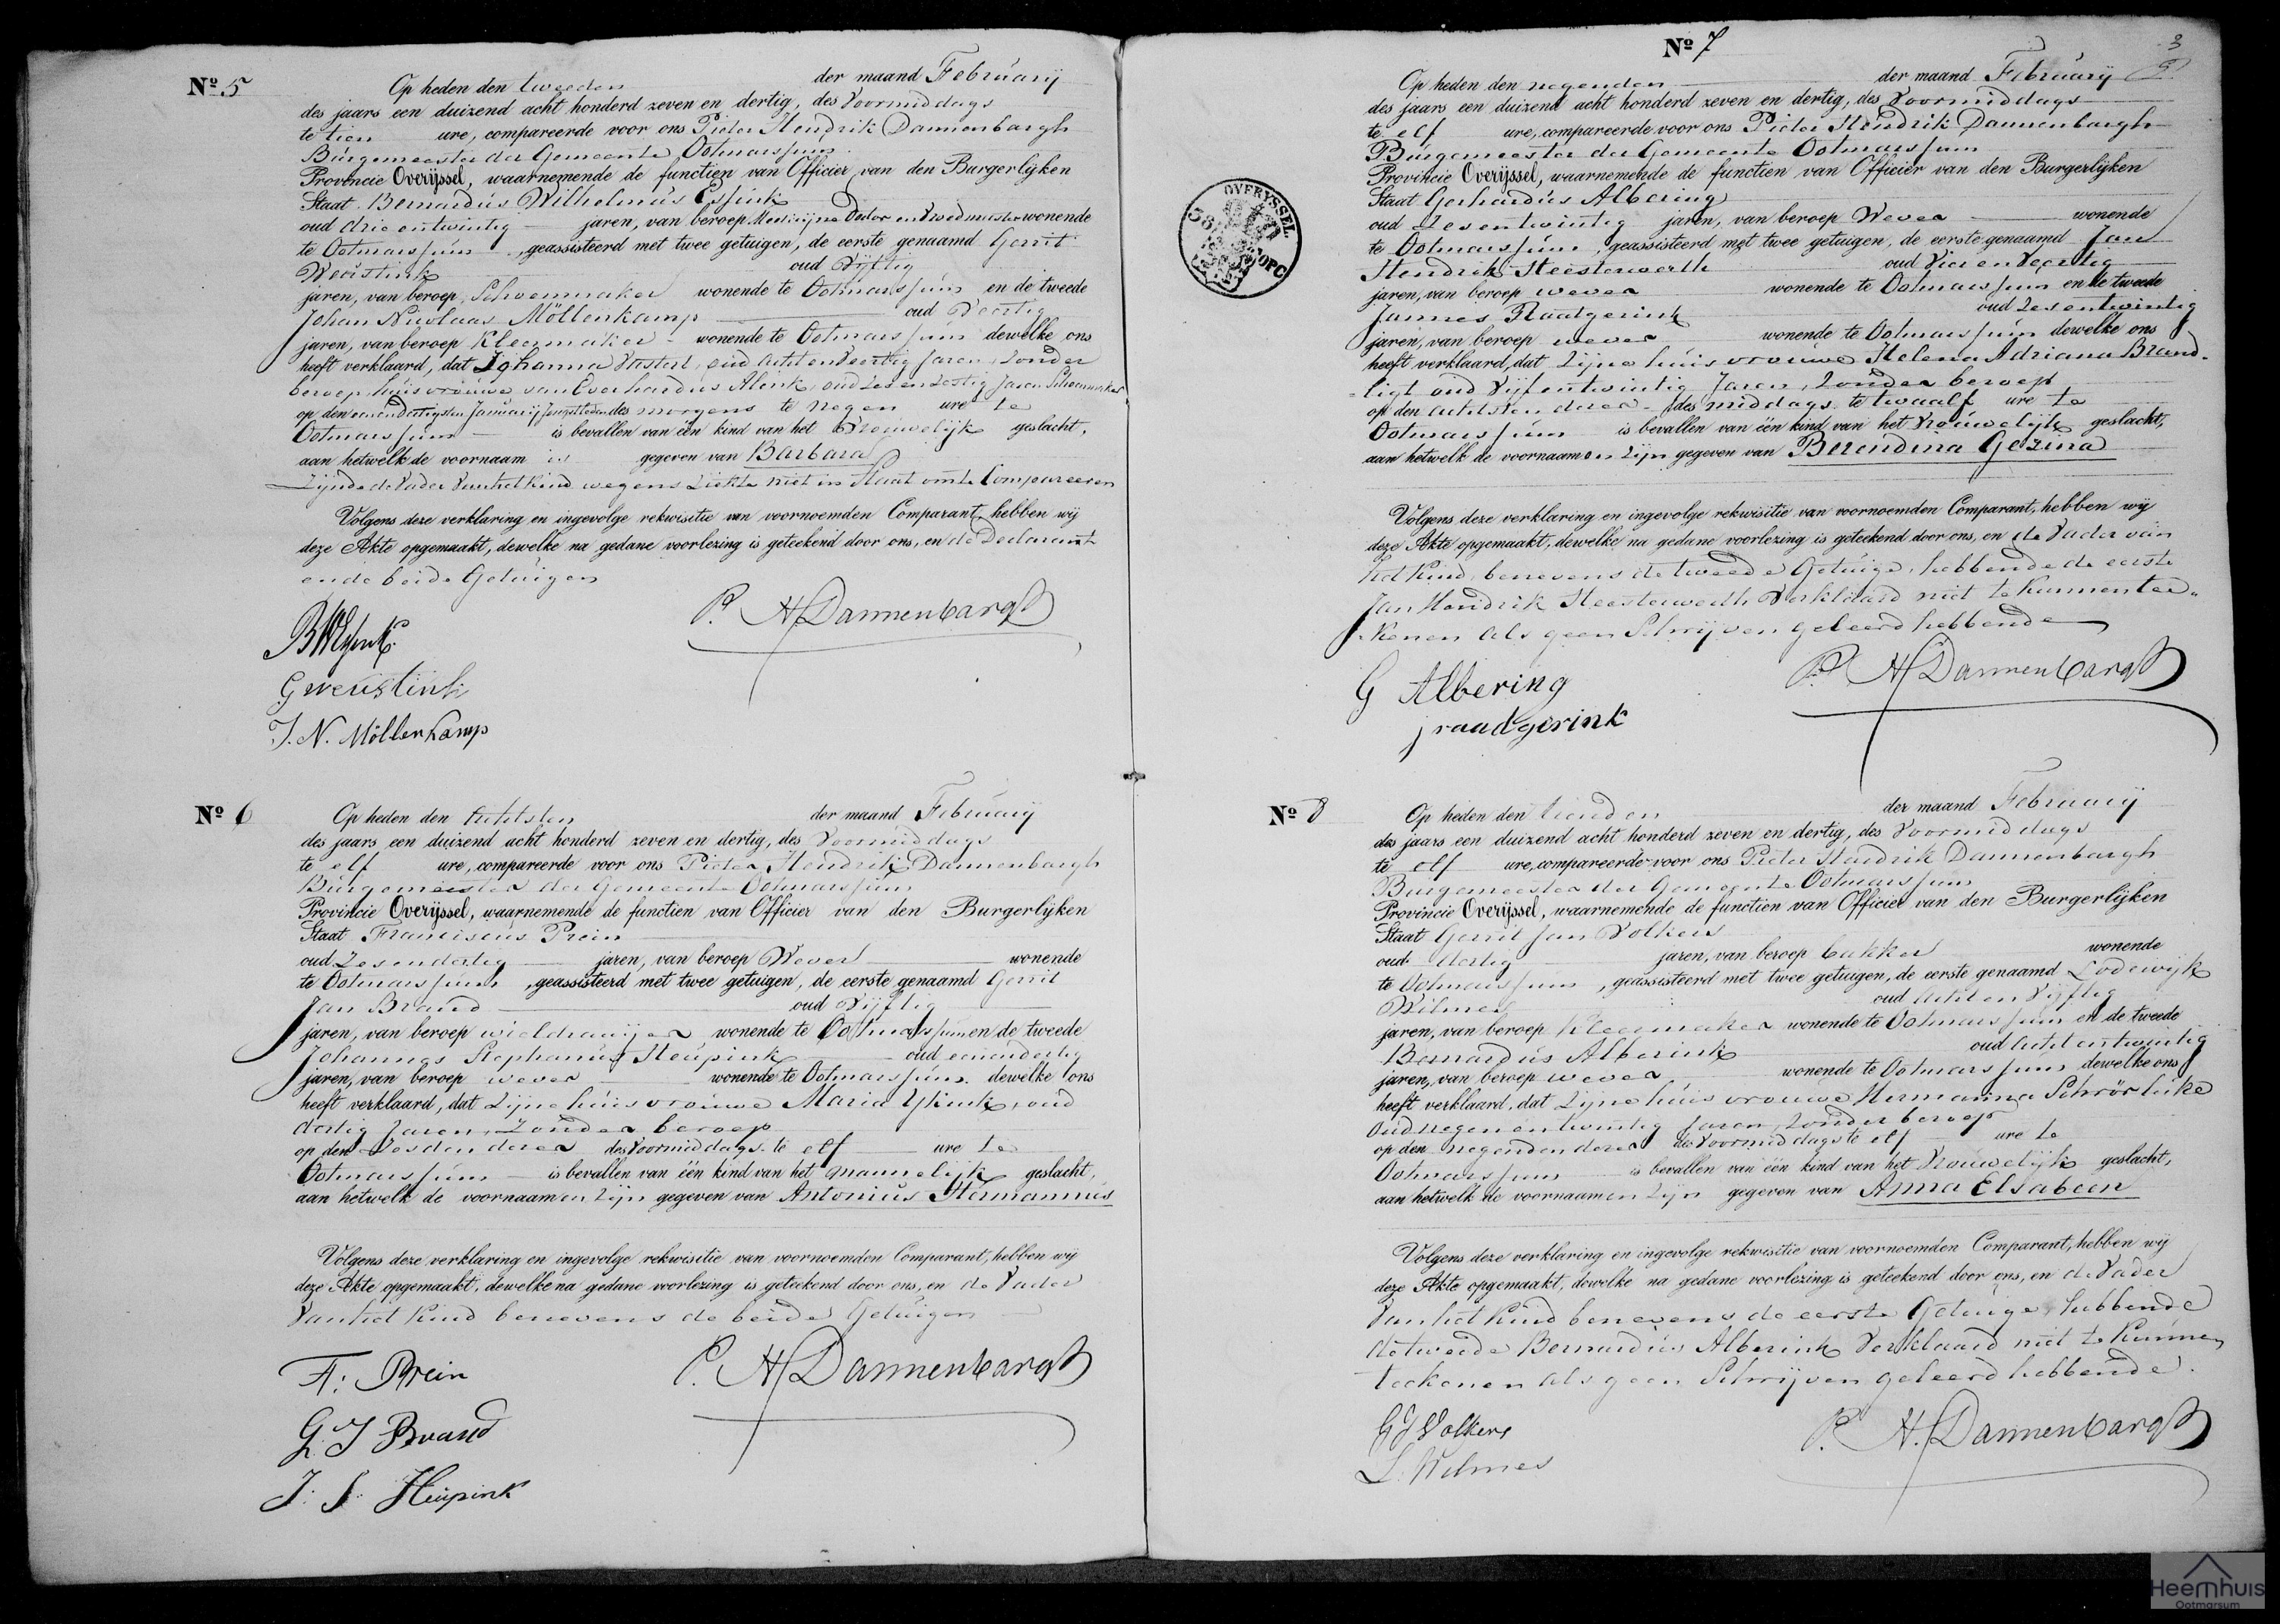 Nº 5
Op heden den tweeden der maand Februarij
des jaars een duizend acht honderd zeven en dertig, des Voormiddags
te tien ure, compareerde voor ons Pieter Hendrik Dannenbargh
Burgemeester der Gemeente Ootmarssum
Provincie Overijssel, waarnemende de functien van Officier van den Burgerlijken
Staat Bernardus Wilhelmus Essink
oud drie entwintig jaren, van beroep Medicijne Doctor en Vroedmeester wonende
te Ootmarssum, geassisteerd met twee getuigen, de eerste genaamd Gerrit
Weustink oud Vijftig
jaren, van beroep Schoenmaker wonende te Ootmarssum en de tweede
Johan Nicolaas Möllenkamp oud Veertig
jaren, van beroep Kleermaker wonende te Ootmarssum dewelke ons
heeft verklaard, dat Johanna oud achtenveertig Jaren, zonder
beroep, huisvrouwe van Everhardus Alink, oud zesenzestig Jaren Schoenmaker
op den eenendertigsten Januarij Jongstleden des morgens te negen ure te
Ootmarssum is bevallen van één kind van het Vrouwelijk geslacht,
aan hetwelk de voornaam is gegeven van Barbara
Zijnde de Vader van het Kind wegens Ziekte niet in Staat om te Compareeren
Volgens deze verklaring en ingevolge rekwisitie van voornoemden Comparant, hebben wij
deze Akte opgemaakt, dewelke na gedane voorlezing is geteekend door ons, en de Declarant
en de beide Getuigen
P. H. Dannenbargh
G Weustink
J. N. Möllenkamp
Nº 6
Op heden den Achtsten der maand Februarij
des jaars een duizend acht honderd zeven en dertig, des Voormiddags
te elf ure, compareerde voor ons Pieter Hendrik Dannenbargh
Burgemeester der Gemeente Ootmarssum
Provincie Overijssel, waarnemende de functien van Officier van den Burgerlijken
Staat Franciscus Prein
oud Zesendertig jaren, van beroep Wever wonende
te Ootmarssum, geassisteerd met twee getuigen, de eerste genaamd Gerrit
Jan Brand oud Vijftig
jaren, van beroep wieldraaijer wonende te Ootmarssum en de tweede
Johannes Stephanus Heupink oud eenendertig
jaren, van beroep wever wonende te Ootmarssum dewelke ons
heeft verklaard, dat Zijne huisvrouwe Maria oud
dertig Jaren, Zonder beroep
op den Zesden dezer des Voormiddags te elf ure te
Ootmarssum is bevallen van één kind van het mannelijk geslacht,
aan hetwelk de voornaamen Zijn gegeven van Antonius Hermannus
Volgens deze verklaring en ingevolge rekwisitie van voornoemden Comparant, hebben wij
deze Akte opgemaakt, dewelke na gedane voorlezing is geteekend door ons, en de Vader
Van het Kind benevens de beide Getuigen
F: Prein P. H. Dannenbargh
G. J Brand
J: S: Heupink
3
Nº 7
Op heden den negenden der maand Februarij
des jaars een duizend acht honderd zeven en dertig, des Voormiddags
te elf ure, compareerde voor ons Pieter Hendrik Dannenbargh
Burgemeester der Gemeente Ootmarssum
Provincie Overijssel, waarnemende de functien van Officier van den Burgerlijken
Staat Gerhardus Albering
oud Zesentwintig jaren, van beroep Wever wonende
te Ootmarssum, geassisteerd met twee getuigen, de eerste genaamd Jan
Hendrik Heesterwerth oud Vier en Veertig
jaren, van beroep wever wonende te Ootmarssum en de tweede
Jannes Raatgerink oud Zesentwintig
jaren, van beroep wever wonende te Ootmarssum dewelke ons
heeft verklaard, dat Zijne huisvrouwe Helena Adriana Brand-
-ligt oud Vijfentwintig Jaren, Zonder beroep
op den achtsten dezer des middags te twaalf ure te
Ootmarssum is bevallen van één kind van het Vrouwelijk geslacht,
aan hetwelk de voornaamen Zijn gegeven van Berendina Gezina
Volgens deze verklaring en ingevolge rekwisitie van voornoemden Comparant, hebben wij
deze Akte opgemaakt, dewelke na gedane voorlezing is geteekend door ons, en de Vader van
het Kind, benevens de tweede Getuige, hebbende de eerste
Jan Hendrik Heesterwerth Verklaard niet te Kunnen tee-
-kenen als geen Schrijven geleerd hebbende
G Albering P. H. Dannenbargh
j raadgerink
Nº 8
Op heden den tienden der maand Februarij
des jaars een duizend acht honderd zeven en dertig, des Voormiddags
te elf ure, compareerde voor ons Pieter Hendrik Dannenbargh
Burgemeester der Gemeente Ootmarssum
Provincie Overijssel, waarnemende de functien van Officier van den Burgerlijken
Staat Gerrit Jan Volkers
oud dertig jaren, van beroep bakker wonende
te Ootmarssum, geassisteerd met twee getuigen, de eerste genaamd Lodewijk
Wilmes oud Acht en Vijftig
jaren, van beroep Kleermaker wonende te Ootmarssum en de tweede
Bernardus Alberink oud Achtentwintig
jaren, van beroep wever wonende te Ootmarssum dewelke ons
heeft verklaard, dat Zijne huisvrouwe Hermanna Schrörlüke
Oud negenentwintig Jaren, Zonder beroep
op den negenden dezer des Voormiddags te elf ure te
Ootmarssum is bevallen van één kind van het Vrouwelijk geslacht,
aan hetwelk de voornaamen Zijn gegeven van Anna Elsabeen
Volgens deze verklaring en ingevolge rekwisitie van voornoemden Comparant, hebben wij
deze Akte opgemaakt, dewelke na gedane voorlezing is geteekend door ons, en de Vader
Van het Kind benevens de eerste Getuige, hebbende
de tweede Bernardus Alberink Verklaard niet te Kunnen
teekenen als geen Schrijven geleerd hebbende.
G J Volkers P. H. Dannenbargh
L. Wilmes
OVERYSSEL.
Heemhuis
Ootmarsum